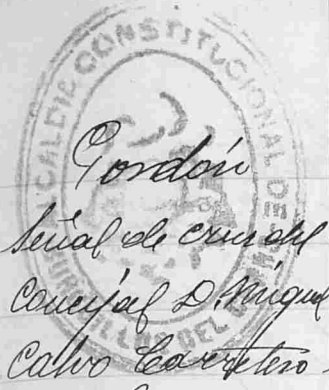 ALCALDIA CONSTITUCIONAL DE
Gordón
Señal de cruz del
Concejal D. Miguel
Calvo Carretero